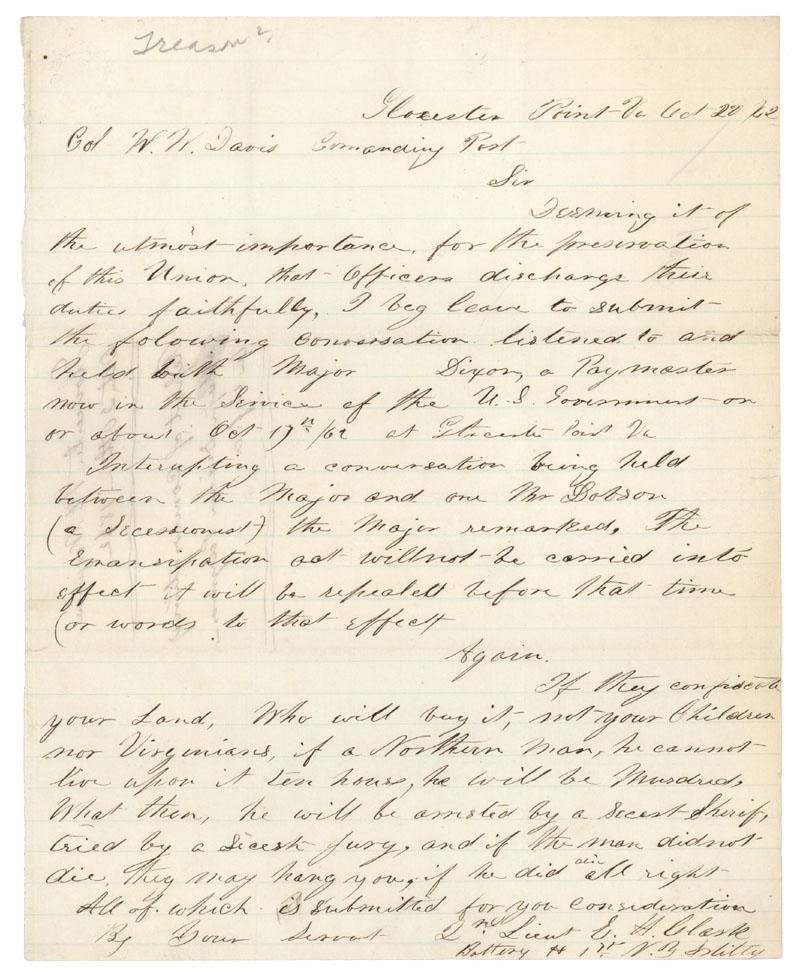 Treason?
Glocester Point Va Oct 20 /62
Col W. W. Davis Comanding Post
Sir
Deeming it of
the utmost importance, for the preservation
of this Union, that Officers discharge their
duties faithfully, I beg leave to submit
the folowing conversation listened to and
held with Major Dixon, a Paymaster
now in the Service of the U.S. Government on
or about Oct 17th /62 at Glocester Point Va
Interupting a conversation being held
between the Major and one Mr Dobson
(a Secessionist) the Major remarked, The
Emansipation act will not be carried into
effect it will be repealed before that time
(or words to that effect
Again.
If they confiscate
your Land, Who will buy it, not your Children
nor Virginians, if a Northern man, he cannot
live upon it ten hours, he will be Murdred,
What then, he will be arrested by a Secest Sherif,
tried by a Secesh jury, and if the man did not
die, they may hang you, if he did all right
All of which is submitted for you consideration
By Your Servant 2nd Lieut E. H. Clark
Battery H 1st N.Y